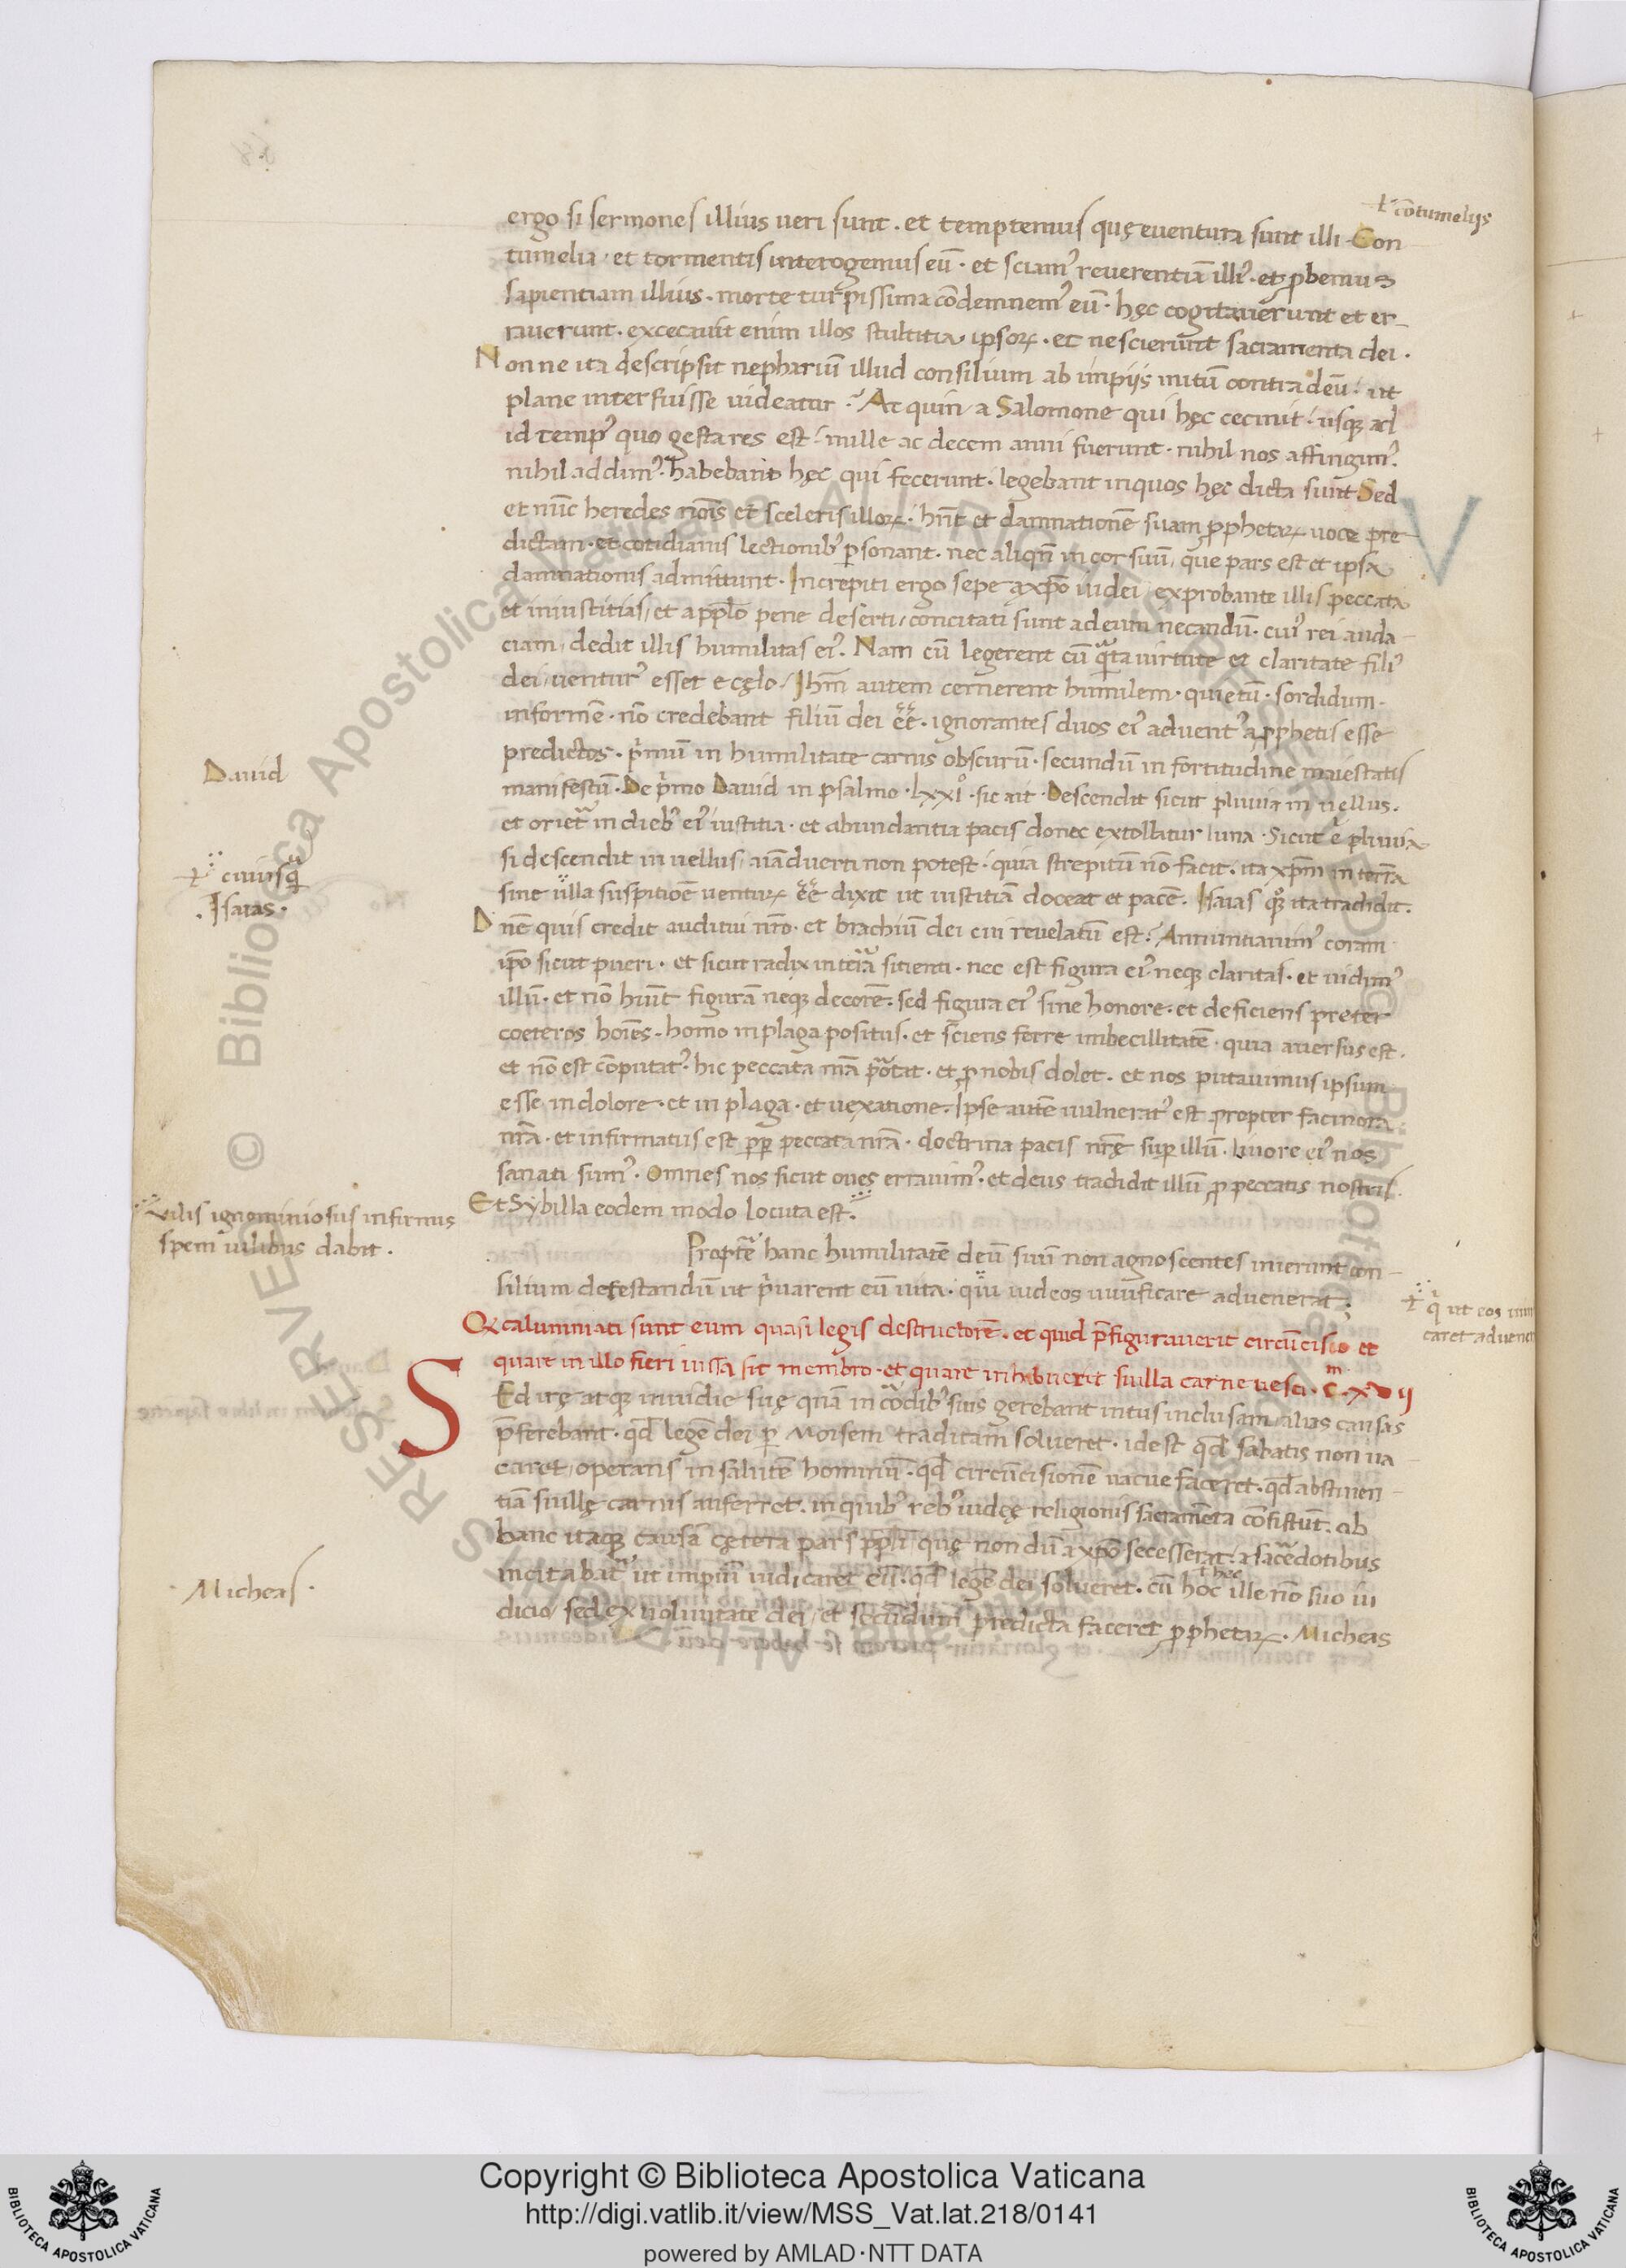 ł cōtumelijs
ergo si sermones illius ueri sunt. et temptemus quę euentura sunt illi. Con
tumelia. et tormentis interogemus eū. et sciamꝰ reuerentiā illiꝰ. et ꝓbemus
sapientiam illius. morte turpissima cōdemnemꝰ eū. hęc cogitauerunt et er_
rauerunt. excecauit enim illos stultitia ipsoꝝ. et nescierunt sacramenta dei.
Non ne ita descripsit nephariū illud consilium ab impijs initū contra deū: ut
plane interfuisse uideatur? At quin a Salomone qui hęc cecinit: usqꝫ ad
id tempꝰ quo gesta res est: mille ac decem anni fuerunt. nihil nos affingimꝰ.
nihil addimꝰ. habebant hęc qui fecerunt. legebant in quos hęc dicta sunt Sed
et nūc heredes noīs et sceleris illoꝝ. hn̄t et damnationē suam ꝓphetaꝝ uoce pre
dictam. et cotidianis lectionibꝰ ꝑsonant. nec aliqn̄ in cor suū, que pars est et ipsa
damnationis admittunt. Increpiti ergo sepe a xp̄o iudei exprobante illis peccata
et iniustitias, et a pp̄lo pene deserti, concitati sunt ad eum necandū. cuiꝰ rei auda
ciam dedit illis humilitas eiꝰ. Nam cū legerent cū q̄ta uirtute et claritate filiꝰ
dei uenturꝰ esset e cęlo, Ihm̄ autem cernerent humilem. quietū. sordidum.
informē. nō credebant filiū dei eē. ignorantes duos eiꝰ aduentꝰ a ꝓphetis esse
predictos. pͥmū in humilitate carnis obscurū. secundū in fortitudine maiestatis
David
manifestū. De pͥmo Dauid in psalmo. lxxi°. sic ait. Descendit sicut pluuia in uellus.
et orietͬ in diebꝰ eiꝰ iustitia. et abundantia pacis donec extollatur luna. Sicut ē pluuia
si descendit in uellus, aīaduerti non potest. quia strepitū nō facit. ita xp̄m in terrā
ł cuiusqͣ
sine ulla suspitiōe uentuꝝ eē dixit ut iustitiā doceat et pacē. Isaias qͦꝫ ita tradidit.
.Isaias.
Dn̄e quis credit auditui nr̄o. et brachiū dei cui reuelatū est? Annuntiauimꝰ coram
ip̄o sicut pueri. et sicut radix in terrā sitienti. nec est figura eiꝰ neqꝫ claritas. et uidimꝰ
illū. et nō huīt figurā neqꝫ decorē. sed figura eiꝰ sine honore. et deficiens preter
coeteros hoīes. homo in plaga positus. et sciens ferre imbecillitatē. quia auersus est.
et nō est cōputatꝰ. hic peccata nr̄a portat. et ꝓ nobis dolet. et nos putauimus ipsum
esse in dolore. et in plaga. et uexatione. Ipse autē uulneratꝰ est propter facinora
nr̄a. et infirmatus est ꝓpꝑ peccata nr̄a. doctrina pacis nr̄ę suꝑ illū. liuore eiꝰ nos
sanati sumꝰ. Omnes nos sicut oues errauimꝰ. et deus tradidit illū ꝓ peccatis nostris.
Et Sybilla eodem modo locuta est.
uilis ignominiosus infirmus
spem uilibus dabit.
Propter hanc humilitatē deū suū non agnoscentes inierunt con_
silium detestandū ut pͥuarent eū uita. qui iudeos uiuificare aduenerat.
ł qͥ ut eos uiui
caret aduener
Qꝫ calumniati sunt eum quasi legis destructorē. et quid p̄figurauerit circūcisio et
quare in illo fieri iussa sit membro. et quare inhibuerit suilla carne uesci. c.m xvij
SEd irę atqꝫ inuidie suę quā in cordibꝰ suis gerebant intus inclusam, alias causas
p̄ferebant. qd̄ legē dei ꝑ Moisem traditam solueret. id est qd̄ sabatis non ua
caret, operans in salutē hominū. qd̄ circūcisionē uacue faceret. qd̄ abstinen_
tiā suillę carnis auferret. in quibꝰ rebꝰ iudeę religionis sacramēta cōsistunt. ob
hanc itaqꝫ causā cętera pars pp̄li quę non dū a xp̄o secesserat: a sacerdotibus
ł hec
Micheas.
incitabatͬ ut impiū iudicaret eū. qd̄ legē dei solueret. cū hoc ille nō suo iu
dicio, sed ex uoluntate dei, et secūdum predicta faceret ꝓphetaꝝ. Micheas
Copyright © Biblioteca Apostolica Vaticana
http://digi.vatlib.it/view/MSS_Vat.lat.218/0141
powered by AMLAD·NTT DATA
BIBLIOTECA APOSTOLICA VATICANA
BIBLIOTECA APOSTOLICA VATICANA